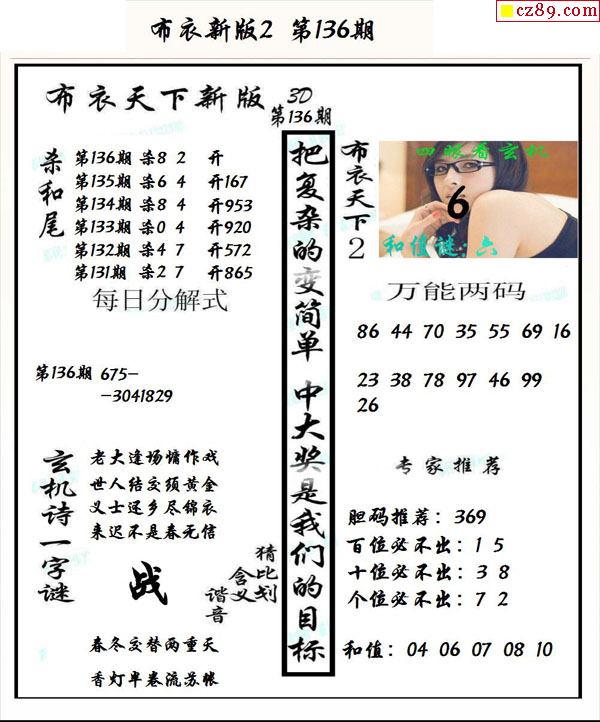 cz89.com
布衣新版2 第136期
布衣天下新版 3D
第136期
杀和尾
第136期 杀8 2 开
第135期 杀6 4 开167
第134期 杀8 4 开953
第133期 杀0 4 开920
第132期 杀4 7 开572
第131期 杀2 7 开865
每日分解式
第136期 675-
-3041829
玄机诗一字谜
老大逢场慵作戏
世人结交须黄金
义士还乡尽锦衣
来迟不是春无信
战
猜比划
含义
谐音
春冬交替两重天
香灯半卷流苏帐
把复杂的变简单 中大奖是我们的目标
布衣天下2
四眼看玄机
6
和值谜:六
万能两码
86 44 70 35 55 69 16
23 38 78 97 46 99
26
专家推荐
胆码推荐：369
百位必不出：1 5
十位必不出：3 8
个位必不出：7 2
和值：04 06 07 08 10